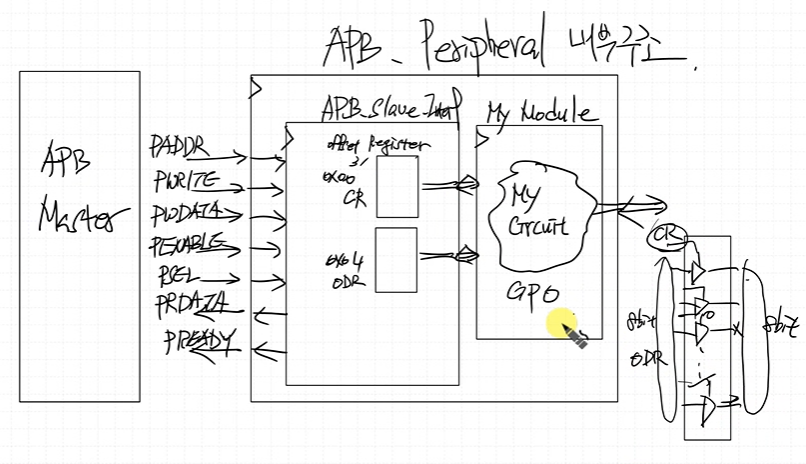 APB_Peripheral 내부구조.
APB
Master
PADDR
PWRITE
PWDATA
PENABLE
PSEL
PRDATA
PREADY
APB_Slave_Intf
offset Register
0x00
CR
0x04
ODR
My Module
My
Circuit
GPO
CR
8bit
ODR
8bit